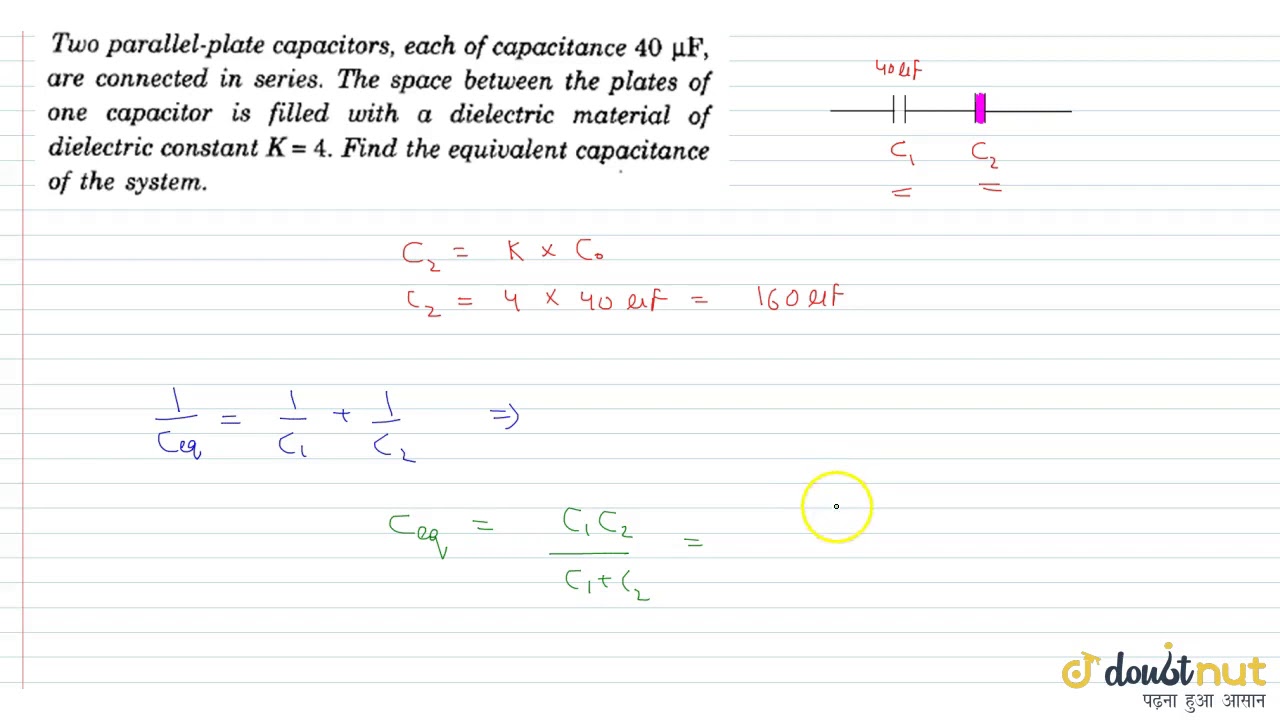 Two parallel-plate capacitors, each of capacitance 40 µF,
are connected in series. The space between the plates of
one capacitor is filled with a dielectric material of
dielectric constant K = 4. Find the equivalent capacitance
of the system.
40 µF
C₁ C₂
= =
C₂ = K × C₀
C₂ = 4 × 40 µF = 160 µF
1/Ceq = 1/C₁ + 1/C₂ ⇒
Ceq = C₁C₂/C₁+C₂ =
doubtnut
पढ़ना हुआ आसान